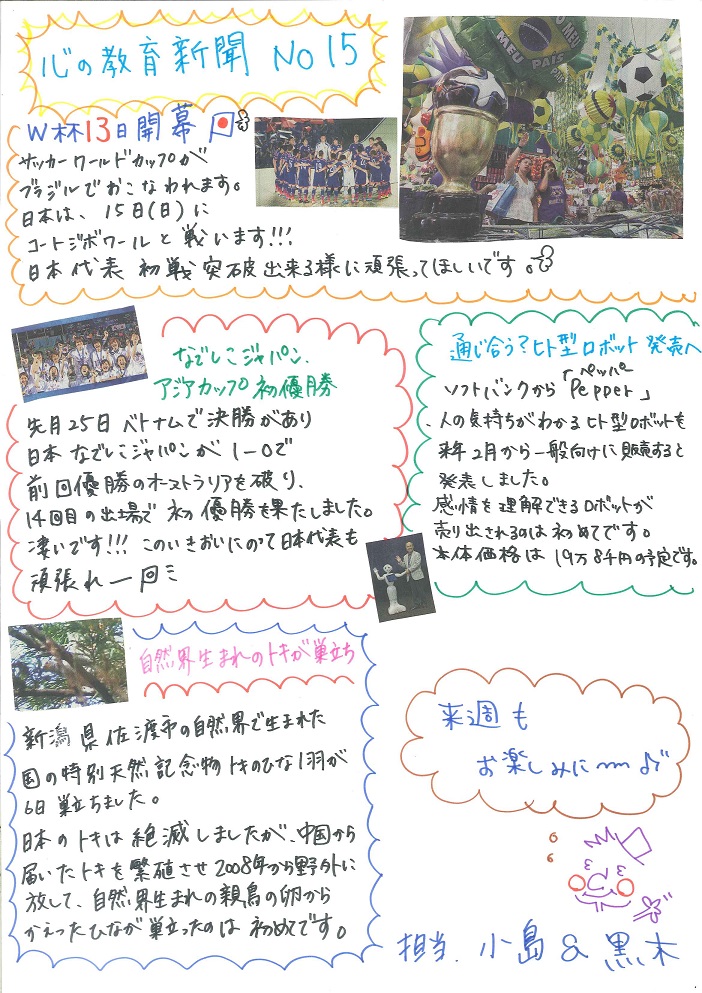 心の教育新聞 NO 15
W杯13日開幕
サッカーワールドカップが
ブラジルでおこなわれます。
日本は、15日(日)に
コートジボワールと戦います!!!
日本代表 初戦突破出来る様に頑張ってほしいです。
MEU
PAÍS
なでしこジャパン、
アジアカップ初優勝
先月25日ベトナムで決勝があり
日本なでしこジャパンが1-0で
前回優勝のオーストラリアを破り、
14回目の出場で初優勝を果たしました。
凄いです!!! このいきおいにのって日本代表も
頑張れー
通じ合う?ヒト型ロボット発売へ
ペッパー
ソフトバンクから「Pepper」
、人の気持ちがわかるヒト型ロボットを
来年2月から一般向けに販売すると
発表しました。
感情を理解できるロボットが
売り出されるのは初めてです。
本体価格は19万8千円の予定です。
自然界生まれのトキが巣立ち
新潟県佐渡市の自然界で生まれた
国の特別天然記念物トキのひな1羽が
6日巣立ちました。
日本のトキは絶滅しましたが、中国から
届いたトキを繁殖させ2008年から野外に
放して、自然界生まれの親鳥の卵から
かえったひなが巣立ったのは初めてです。
来週も
お楽しみに〜♪
担当、小島&黒木